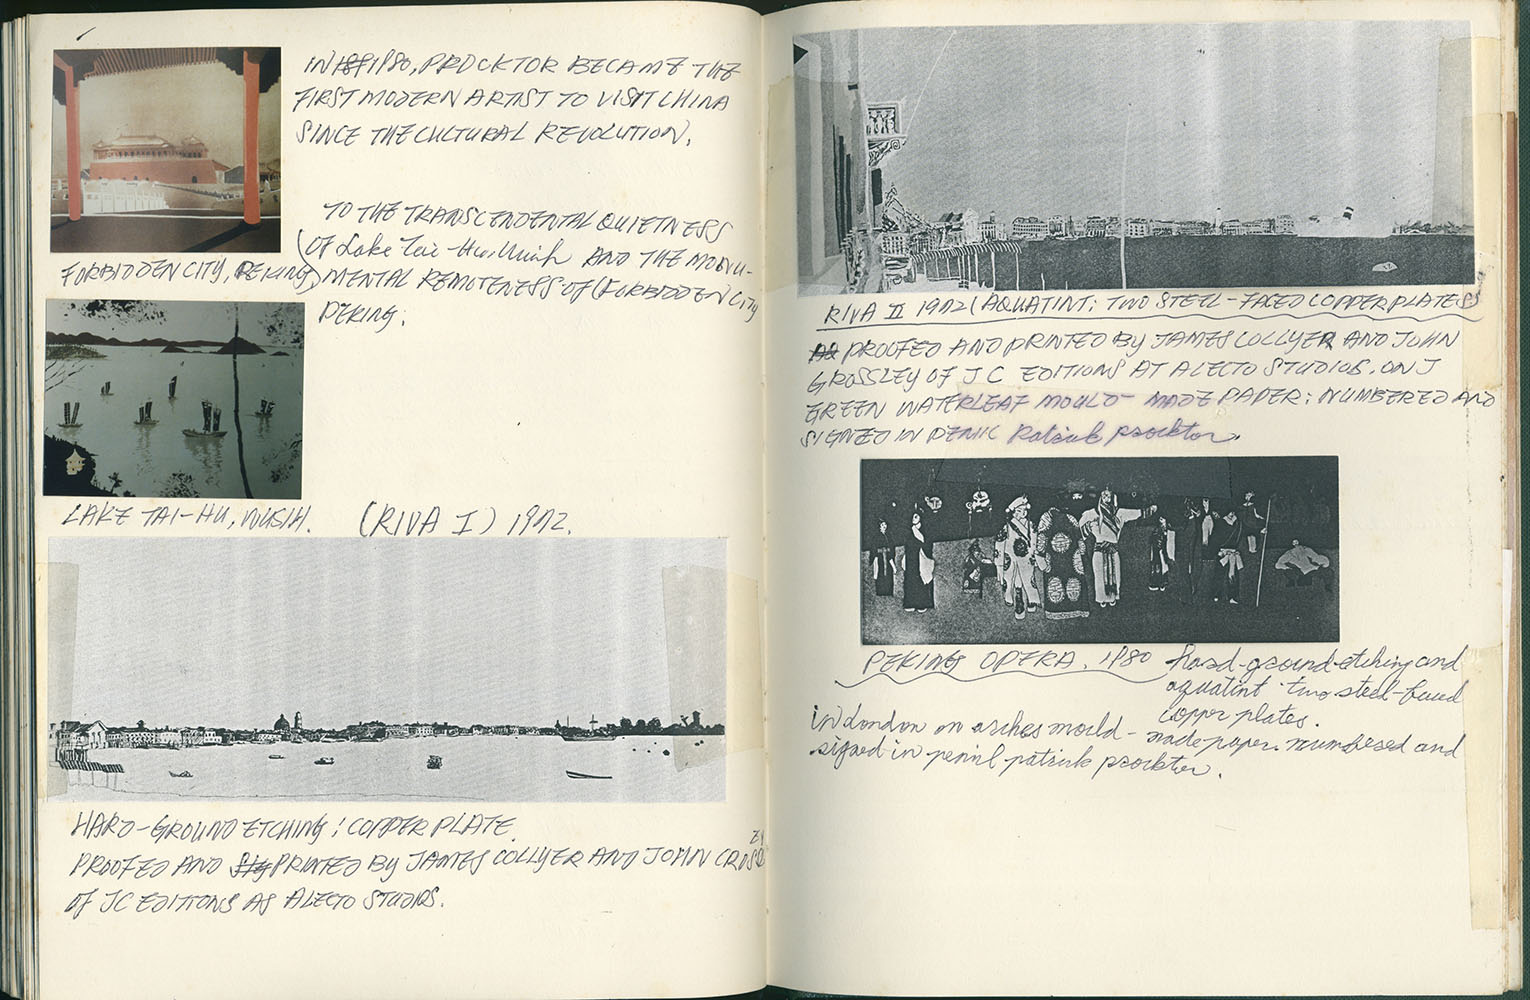 IN 1980, PROCKTOR BECAME THE
FIRST MODERN ARTIST TO VISIT CHINA
SINCE THE CULTURAL REVOLUTION.
TO THE TRANSCENDENTAL QUIETNESS
OF Lake Tai-Hu, AND THE MONU-
MENTAL REMOTENESS OF (FORBIDDEN CITY
PEKING.
FORBIDDEN CITY, PEKING
LAKE TAI-HU, WUSIH.
(RIVA I) 1972.
HARD-GROUND ETCHING: COPPER PLATE
PROOFED AND PRINTED BY JAMES COLLYER AND JOHN CROSSLEY
OF JC EDITIONS AS ALECTO STUDIOS.
RIVA II 1972 (AQUATINT: TWO STEEL-FACED COPPER PLATES)
PROOFED AND PRINTED BY JAMES COLLYER AND JOHN
GROSSLEY OF J C EDITIONS AT ALECTO STUDIOS. ON J
GREEN WATERLEAF MOULD-MADE PAPER: NUMBERED AND
SIGNED IN PENIC Patrick procktor.
PEKING OPERA. 1980 hard-ground-etching and
aquatint two steel-faced
copper plates.
in London on arches mould-made paper. numbered and
signed in pencil patrick procktor.